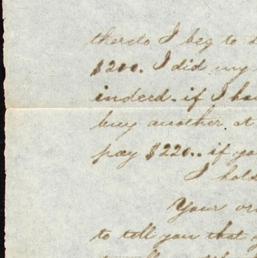 thereto I beg to
$200. I did my
indeed. if I ha
buy another. at
pay $220.. if yo
I hold
Your or
to tell you that y